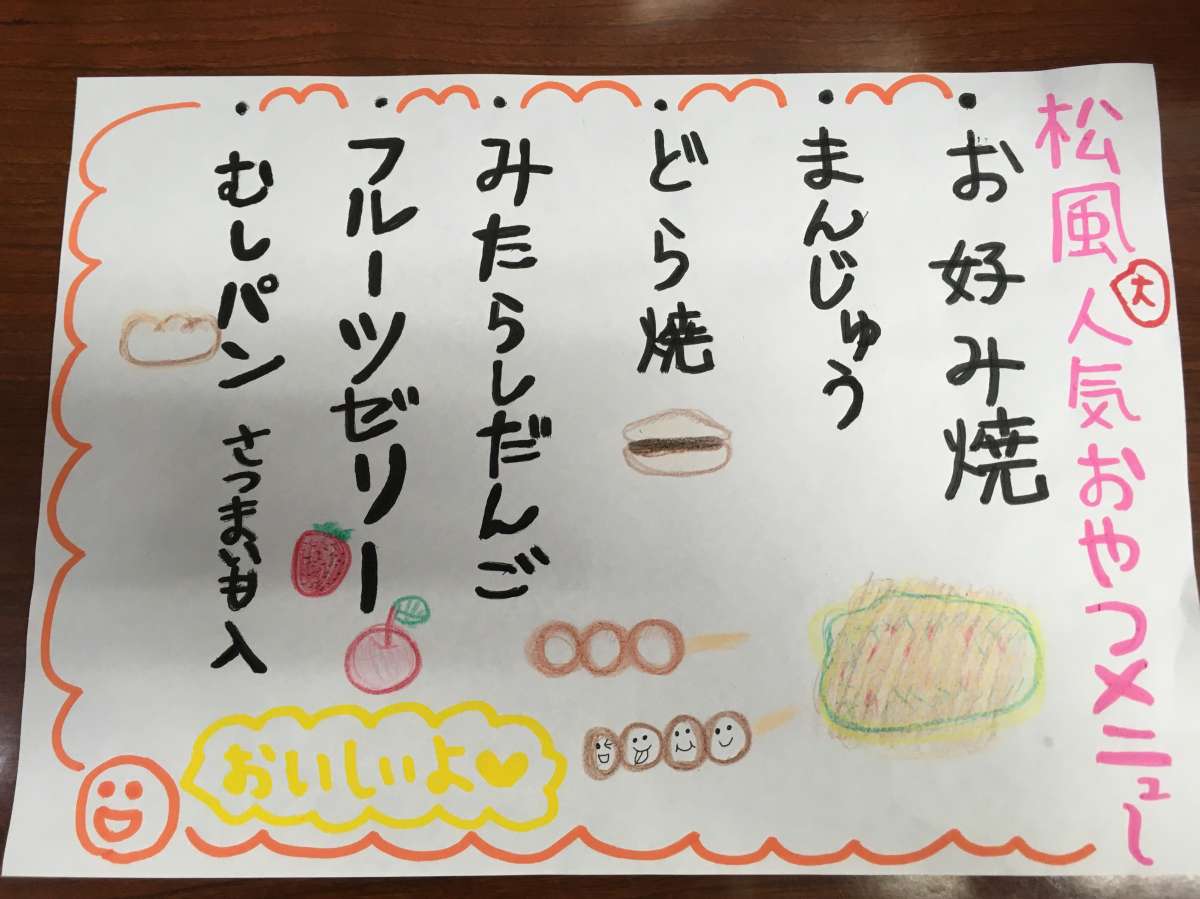 松風大人気おやつメニュー
・お好み焼
・まんじゅう
・どら焼
・みたらしだんご
・フルーツゼリー
・むしパン さつまいも入
おいしいよ♥